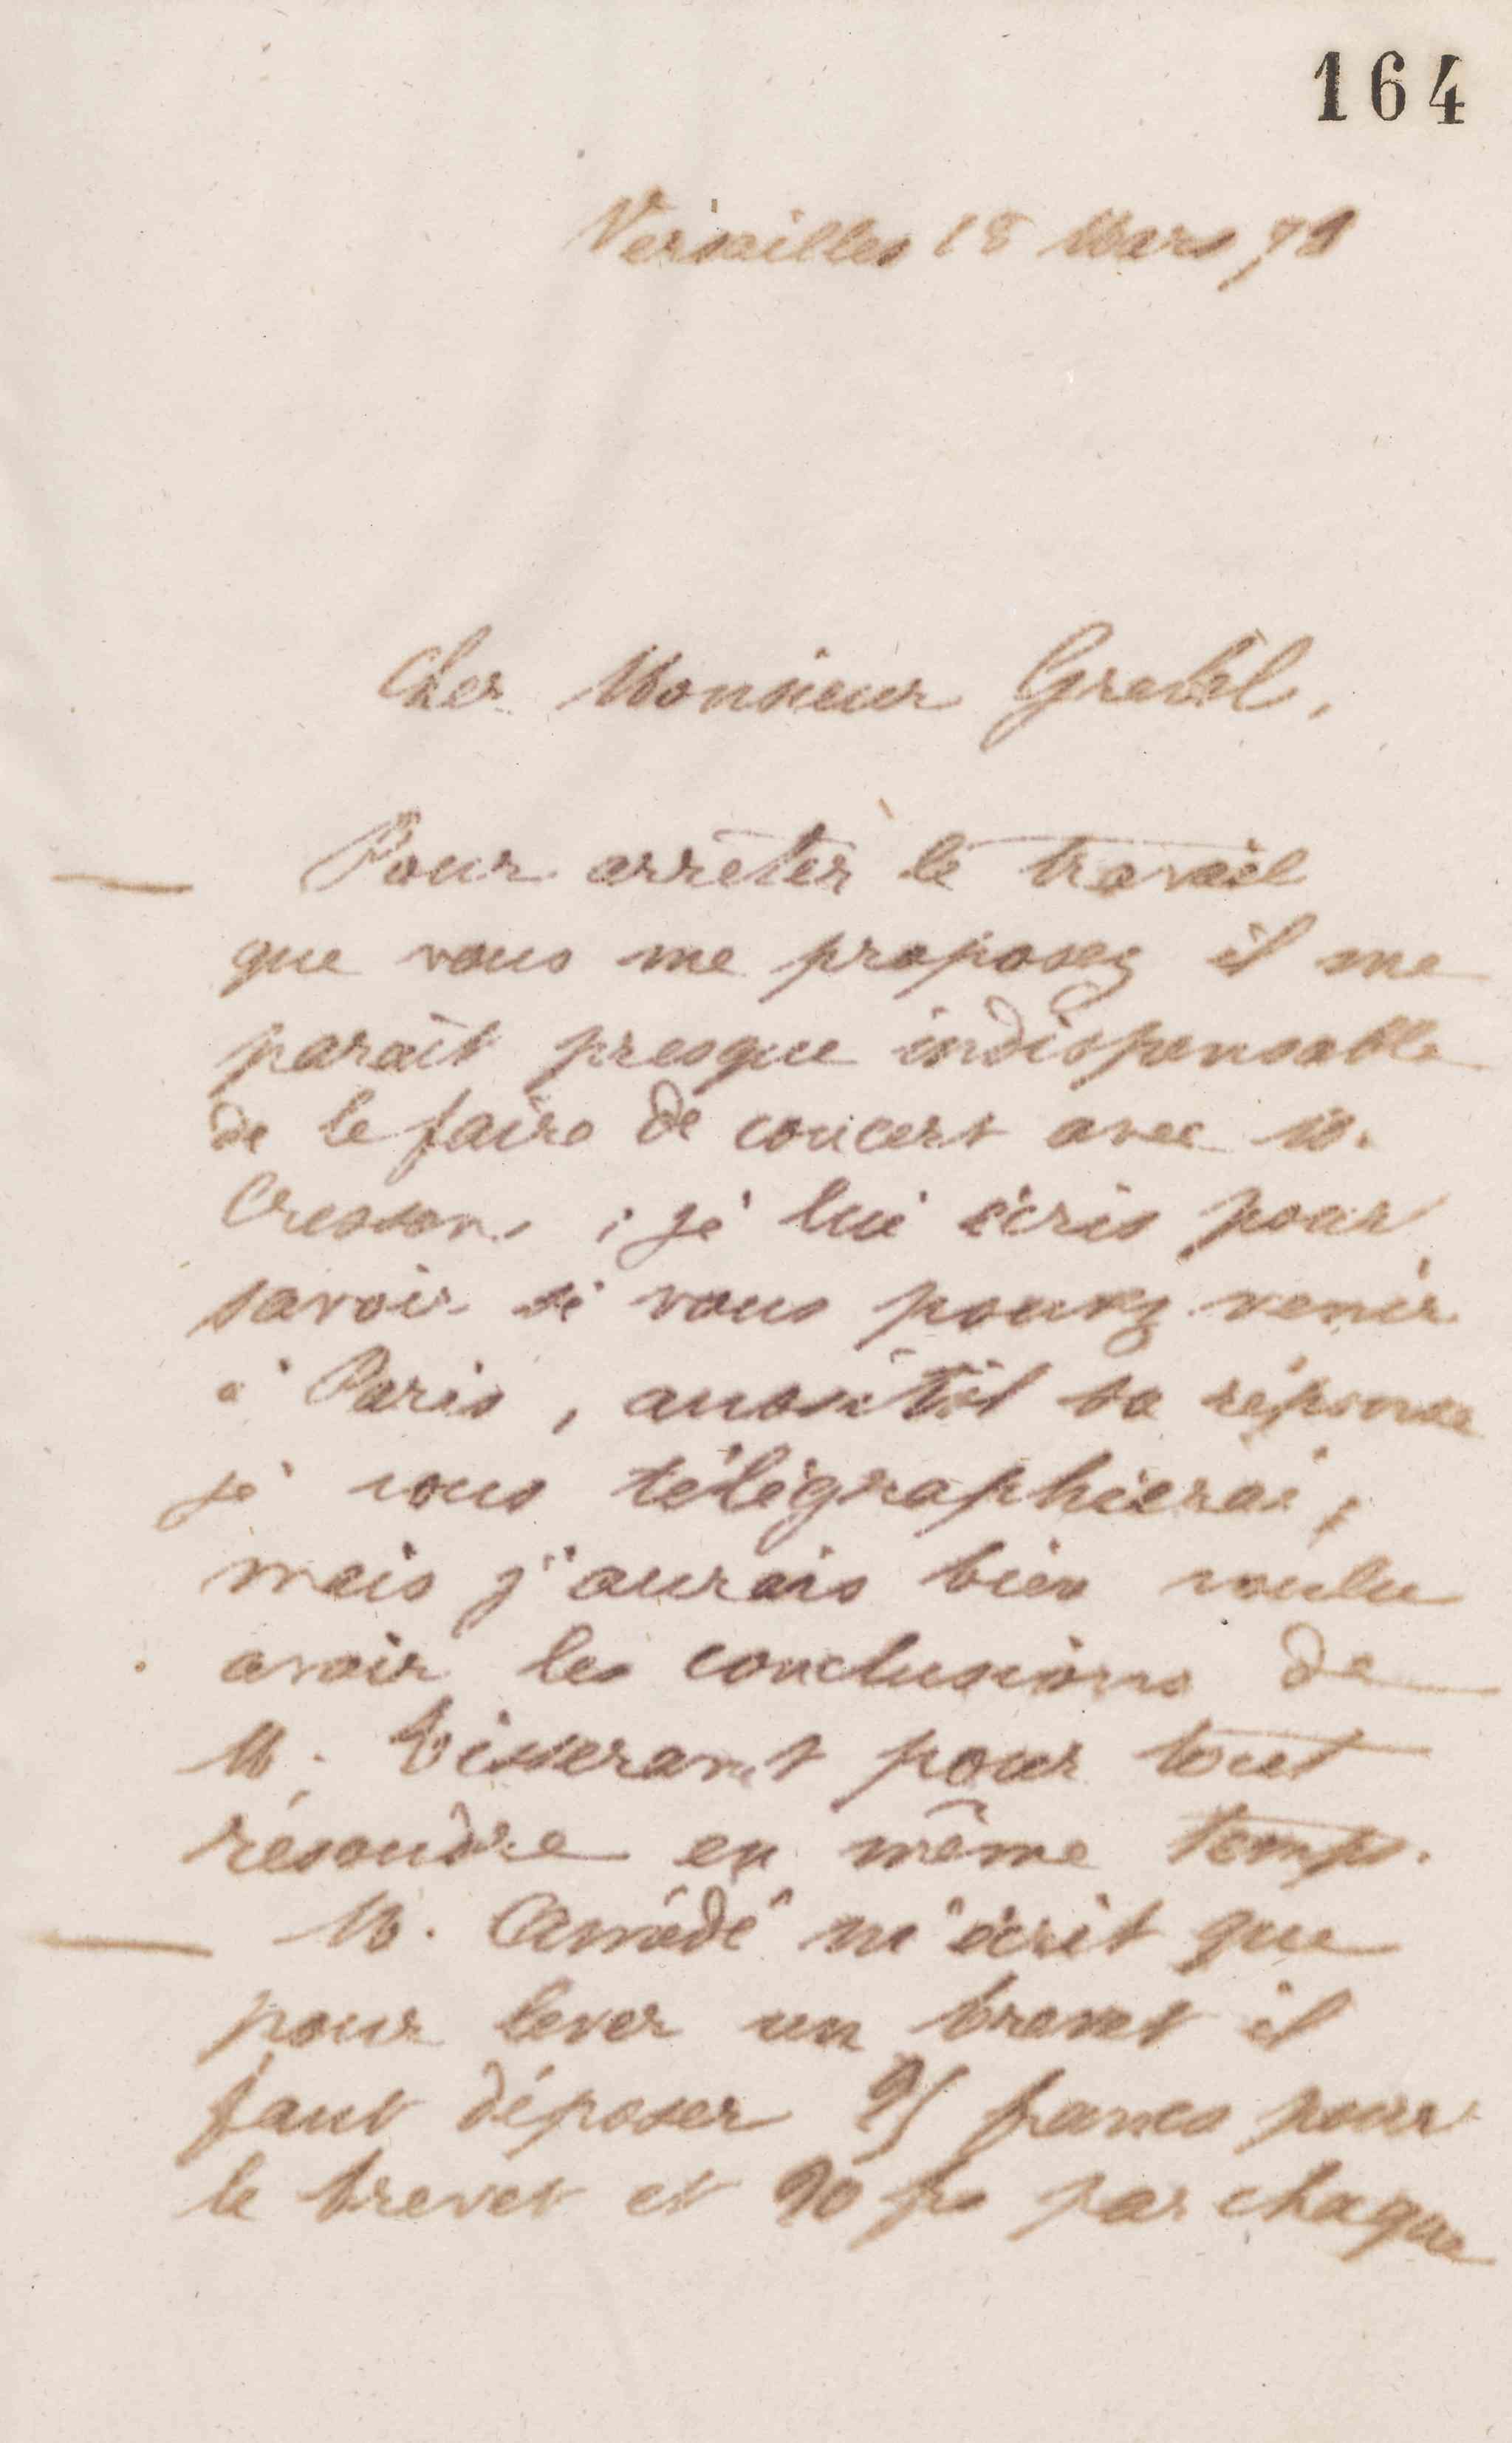 164
Versailles 18 Mars 79
Cher Monsieur Grebel,
Pour arrêter le travail
que vous me proposez il me
parait presque indispensable
de le faire de concert avec M.
Cresson ; je lui écris pour
savoir si vous pouvez venir
à Paris, aussitôt sa réponse
je vous télégraphierai,
mais j'aurais bien voulu
avoir les conclusions de
M. Tisserant pour tout
résoudre en même temps.
M. Amédé m'écrit que
pour lever un brevet il
faut déposer 95 francs pour
le brevet et 90 fs par chaque